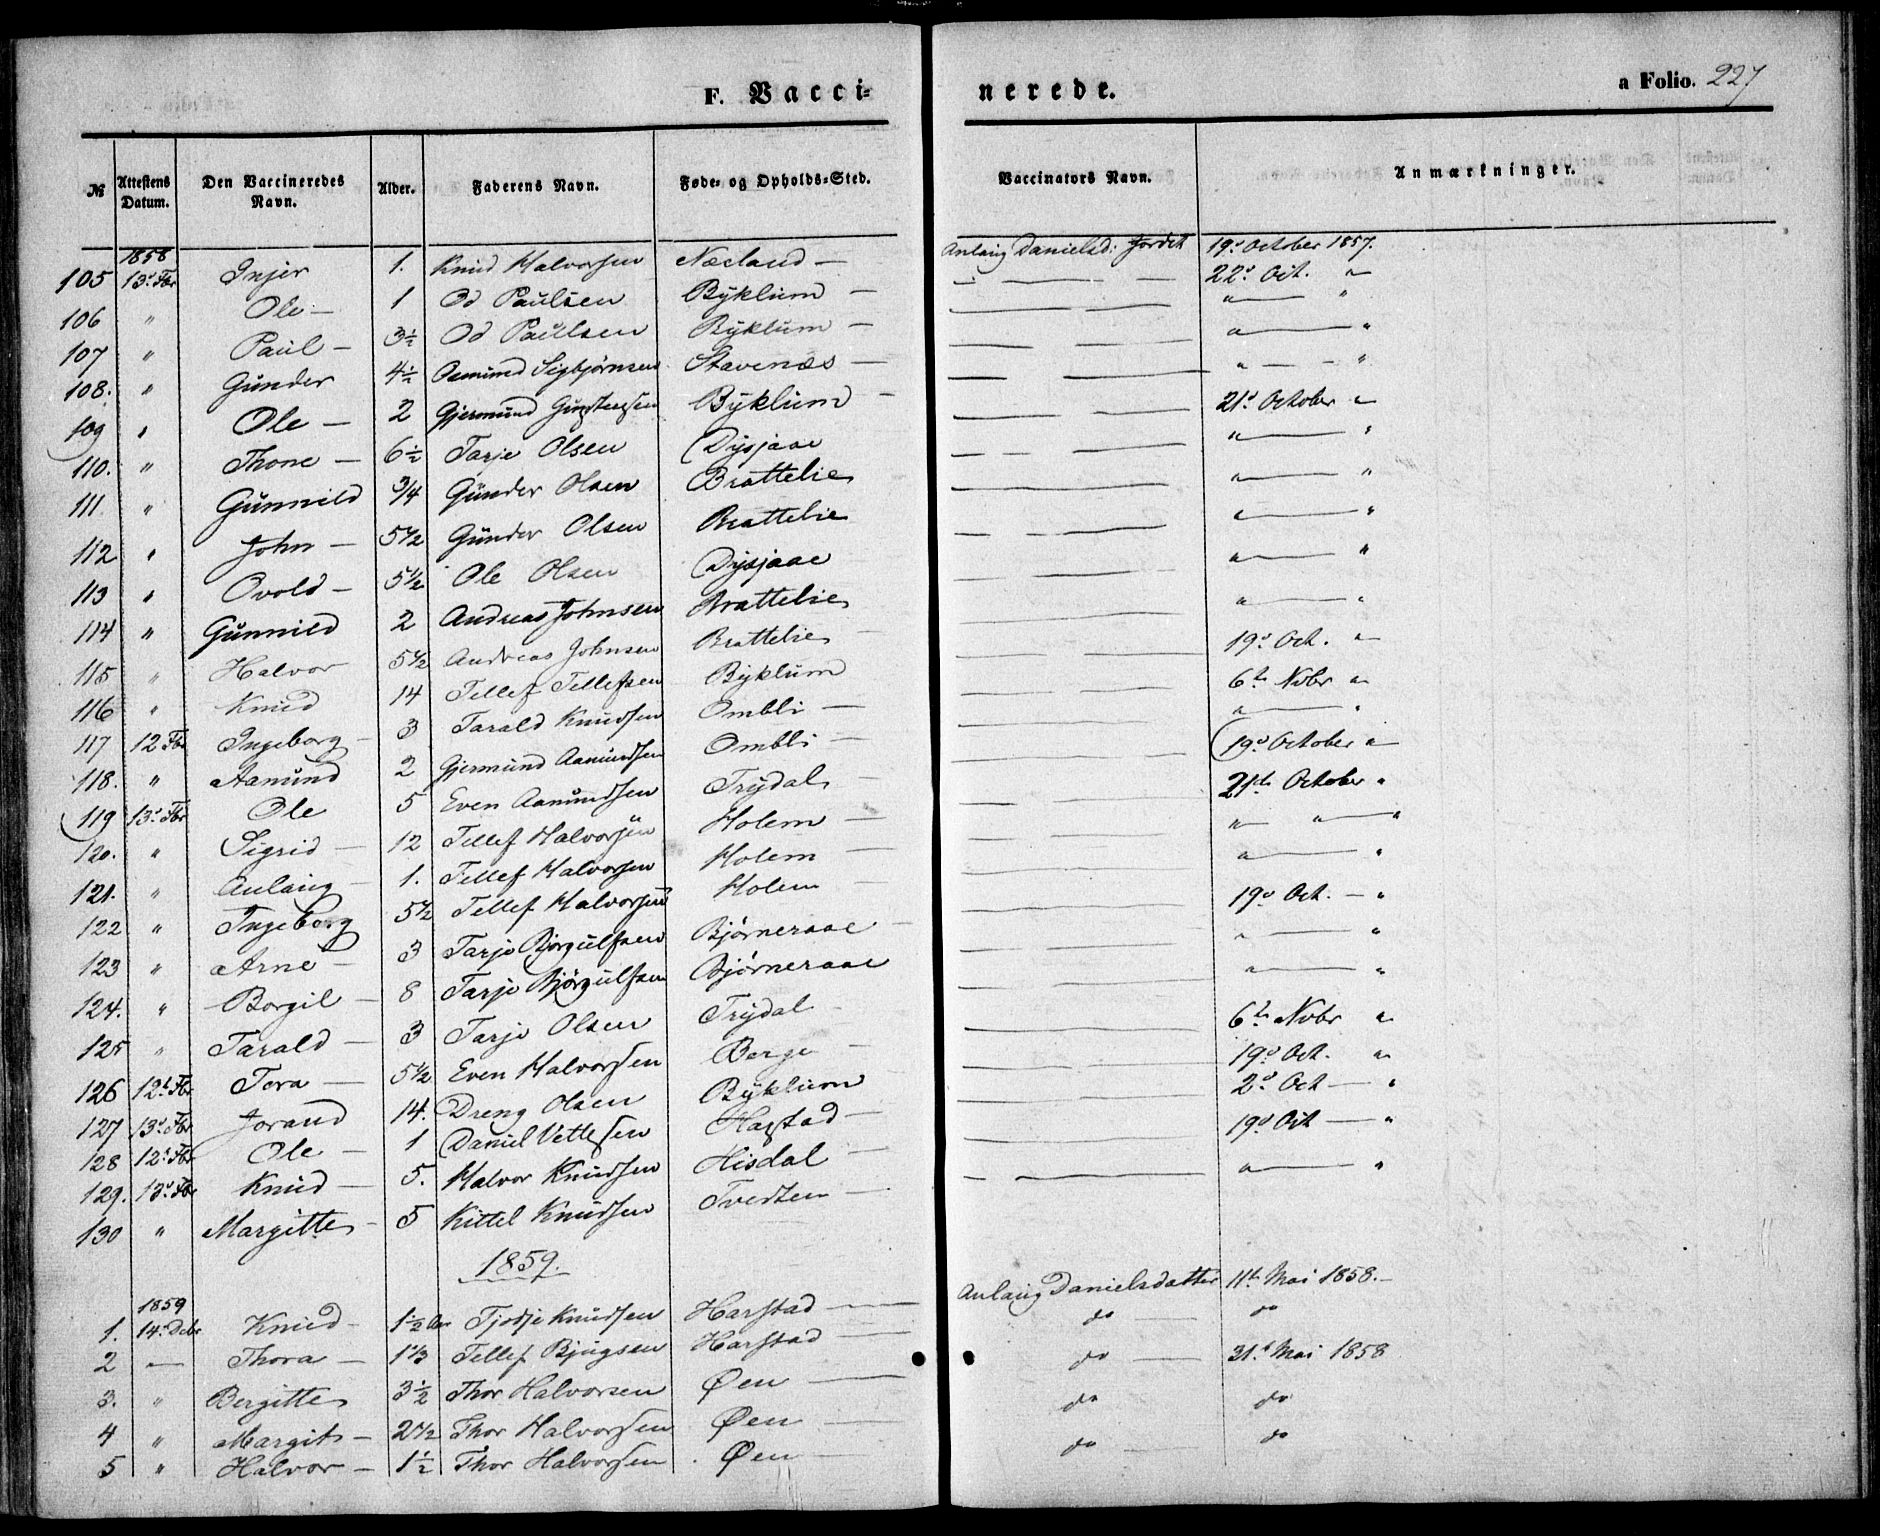 F. Vacci-
nerede.
a Folio. 227
№ Attestens Datum. Den Vaccineredes Navn. Alder. Faderens Navn. Føde- og Opholds-Sted. Vaccinators Navn. Anmærkninger.
1858
105 13de Fbr Injer 1. Knud Halvorsen Næsland — Anlaug Danielsd: Jordet 19de October 1857.
106 " Ole — 1 Od Paulsen Byklum — 22de Oct. "
107 " Paul — 3½ Od Paulsen Byklum — " "
108. " Gunder 4½ Osmund Sigbjørnsen Stavenæs — " "
109 " Ole — 2 Gjermund Gundersen Byklum — " "
110. " Thone — 6½ Tarje Olsen Dysjaae 21de October "
111 " Gunnild 3/4 Gunder Olsen Brattelie " "
112 " John — 5½ Gunder Olsen Brattelie " "
113 " Ovold — 5½ Ole Olsen Dysjaae " "
114 " Gunnild 2 Andreas Johnsen Brattelie " "
115 " Halvor 5½ Andreas Johnsen Brattelie " "
116 " Knud 14 Tellef Tellefsen Byklum 19de Oct. "
117 12 Fbr Ingeborg — 3 Tarald Knudsen Ombli — 6te Nvbr "
118. " Aamund 2 Gjermund Aamundsen Ombli — " "
119 13de Fbr Ole 5 Even Aamundsen Trydal — 19de October "
120. " Sigrid — 12 Tellef Halvorsen Holem — 21de October "
121. " Anlaug — 1. Tellef Halvorsen Holem — " "
122 " Ingeborg 5½ Tellef Halvorsen Holem — " "
123 " Arne — 3 Tarje Bjørgulfsen Bjørneraae 19de Oct. — "
124. " Borgil — 8 Tarje Bjørgulfsen Bjørneraae " "
125 " Tarald — 3 Tarje Olsen Trydal " "
126 12te Fbr Tora — 5½ Even Halvorsen Berge — 6te Nvbr "
127 13de Fbr Jorand 14. Dreng Olsen Byklum 19de Oct. "
128 12te Fbr Ole — 1 Daniel Vettesen Hagstad — 2de Oct — "
129. 13de Fbr Knud — 5. Halvor Knudsen Hisdal — 19de Oct — "
130 " Margitte — 5 Kittel Knudsen Tvedten — " "
1859.
1859
1. 14de Debr Knud — 1½ Aar Tjodje Knudsen Harstad — Anlaug Danielsdatter 11te Mai 1858. —
2 — Thora — 1 1/3 Tellef Bjugsen Harstad — do — do
3. " Bergitte 3½ Thor Halvorsen Øen — do — 31te Mai 1858
4 " Margit — 2½ Thor Halvorsen Øen — do do
5 " Halvor — 1½ Thor Halvorsen Øen — do — do